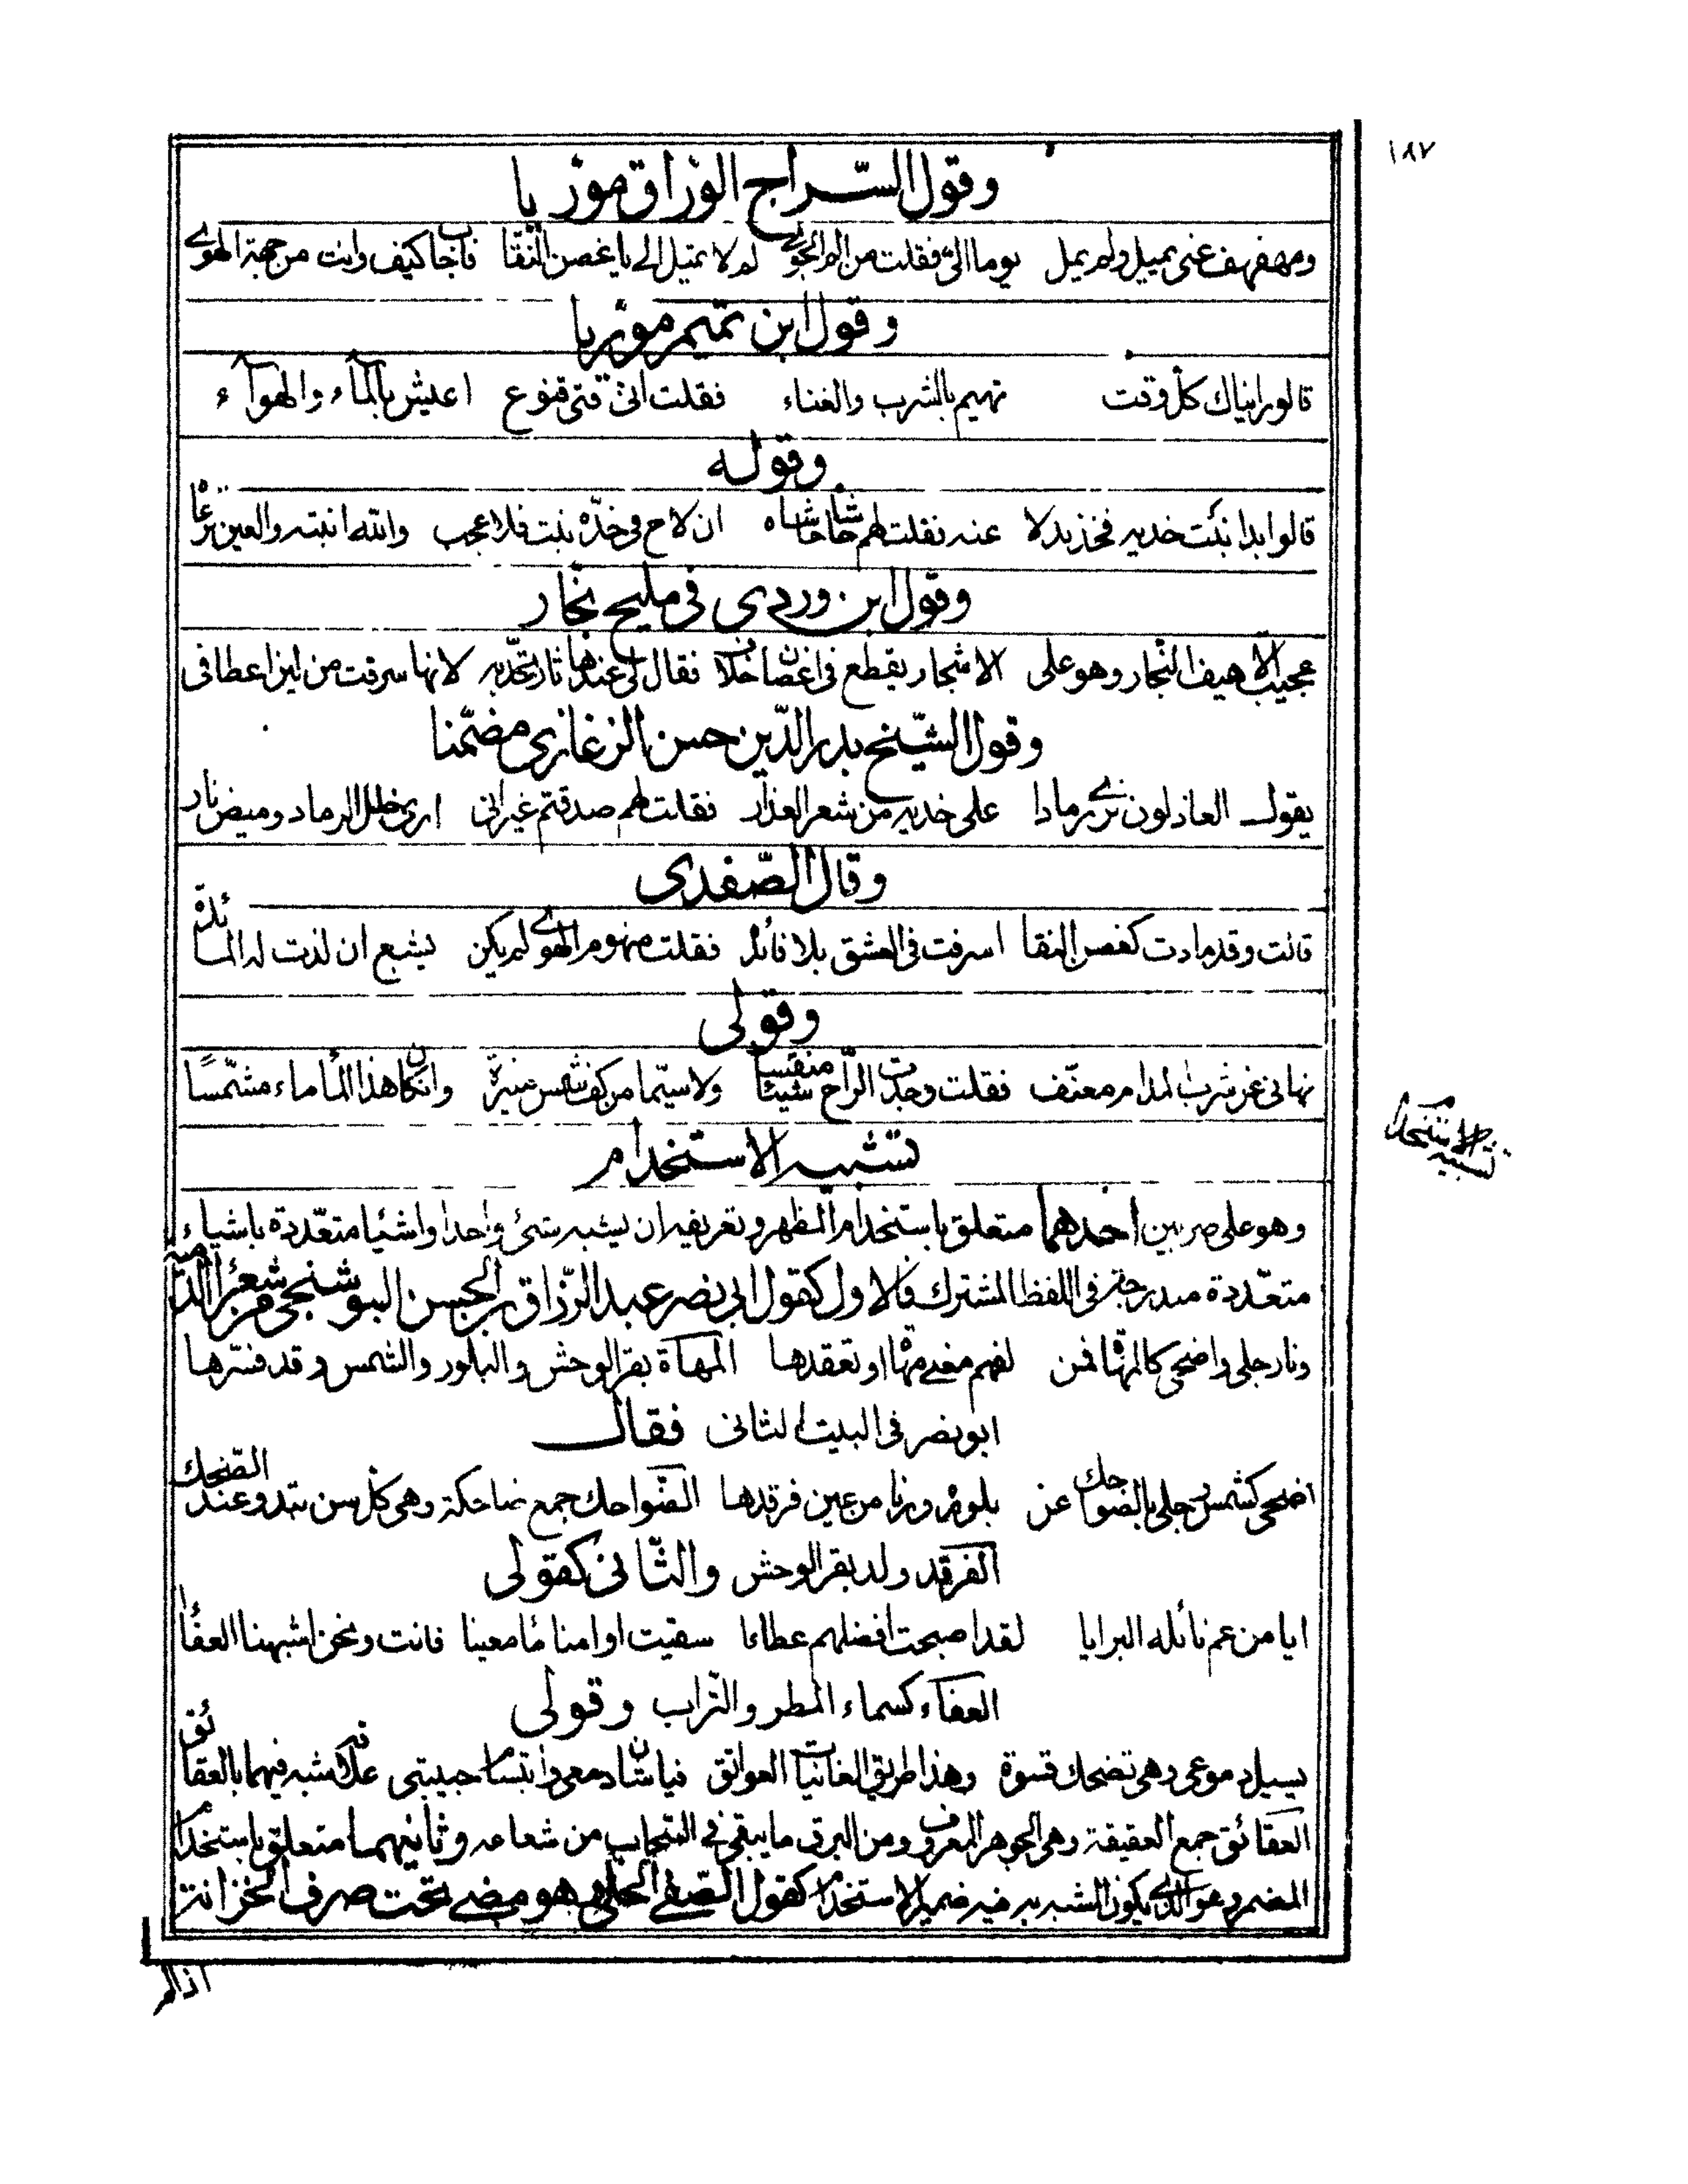 ١٨٧
وقول السّراج الورّاق مورّيا
ومهفهف عنى يميل ولم يمل يوما الىّ فقلت من الم الجوى لم لا تميل الى يا غصن النّقا فاجاب كيف وانت من جهة الهوى
وقول ابن تميم مورّيا
قالو رايناك كل وقت تهيم بالشرب والغناء فقلت انى فتى قنوع اعيش بالمآء والهوآء
وقوله
قالوا بدا نبت خديه فخذ بدلا عنه فقلت لهم حاشاه حاشاه ان لاح فى خدّه نبت فلا عجب والله انبته والعين ترعاه
وقول ابن وردى فى مليح نجّار
عجبت الاهيف النّجار وهو على الاشجار يقطع فى اغصان خلاف فقال لى عندها ثار تخذّيه لانها سرقت من لين اعطافى
وقول الشّيخ بدر الدّين حسن الزغارى مضمّنا
يقول العاذلون نرى رمادا على خديه من شعر العذار فقلت لهم صدقتم غير انى ارى خلل الرماد وميض نار
وقال الصّفدى
قالت وقد مادت كغصن النقا اسرفت فى العشق بلا فائده فقلت منهوم الهوى لم يكن يشبع ان لذت له المائدة
وقولى
نهانى عن شرب المدام معنّف فقلت وجدت الرّاح شيئا منفّسا ولا سيّما من كف شمس منيرة وان كان هذا المأ ماء مشمّسًا
تشبيه الاستخدام
تشبيه الاستخدام
وهو على ضربين احدهما متعلق باستخدام المظهر وتعريفه ان يشبه شئ واحدا واشيا متعّددة باشياء
متعّددة مندرجة فى اللفظ المشترك فالاول كقول ابى نصر عبد الرّزاق بن الحسن البوشنجى من شعراء الدّمية
ونار جلى واضحى كالمهاة فمن لفهم معنى مهاة او تعقدها المهاة بقر الوحش والبلور والشمس وقد فسّرها
ابو نصر فى البيت الثانى فقال
اضحى كشمس وجلى بالضواحك عن بلورة ورنا من عين فرقدها الضّواحك جمع ضاحكة وهى كل سن تبدو عند الضّحك
الفرقد ولد بقر الوحش والثّانى كقولى
ايا من عم نائله البرايا لقد اصبحت افضلهم عطاءا سقيت اوامنا مأ معينا فانت ونحن اشبهنا العفاء
العفآء كسماء المطر والتراب وقولى
يسيل دموعى وهى تضحك قسوة وهذا طريق الغانيات العواتق فيا شان دمعى وابتسام حبيبتى علاقة شبه فيهما بالعقائق
العقائق جمع العقيقة وهى الجوهر المعروف ومن البرق ما يبقى فى السّحاب من شعاعه وثانيهما متعلق باستخدام
المضمر وهو الذى يكون المشبه به فيه ضمير الاستخدام كقول الصّفى الحلى وهو مضى تحت صرف الخزانة
اذا لم